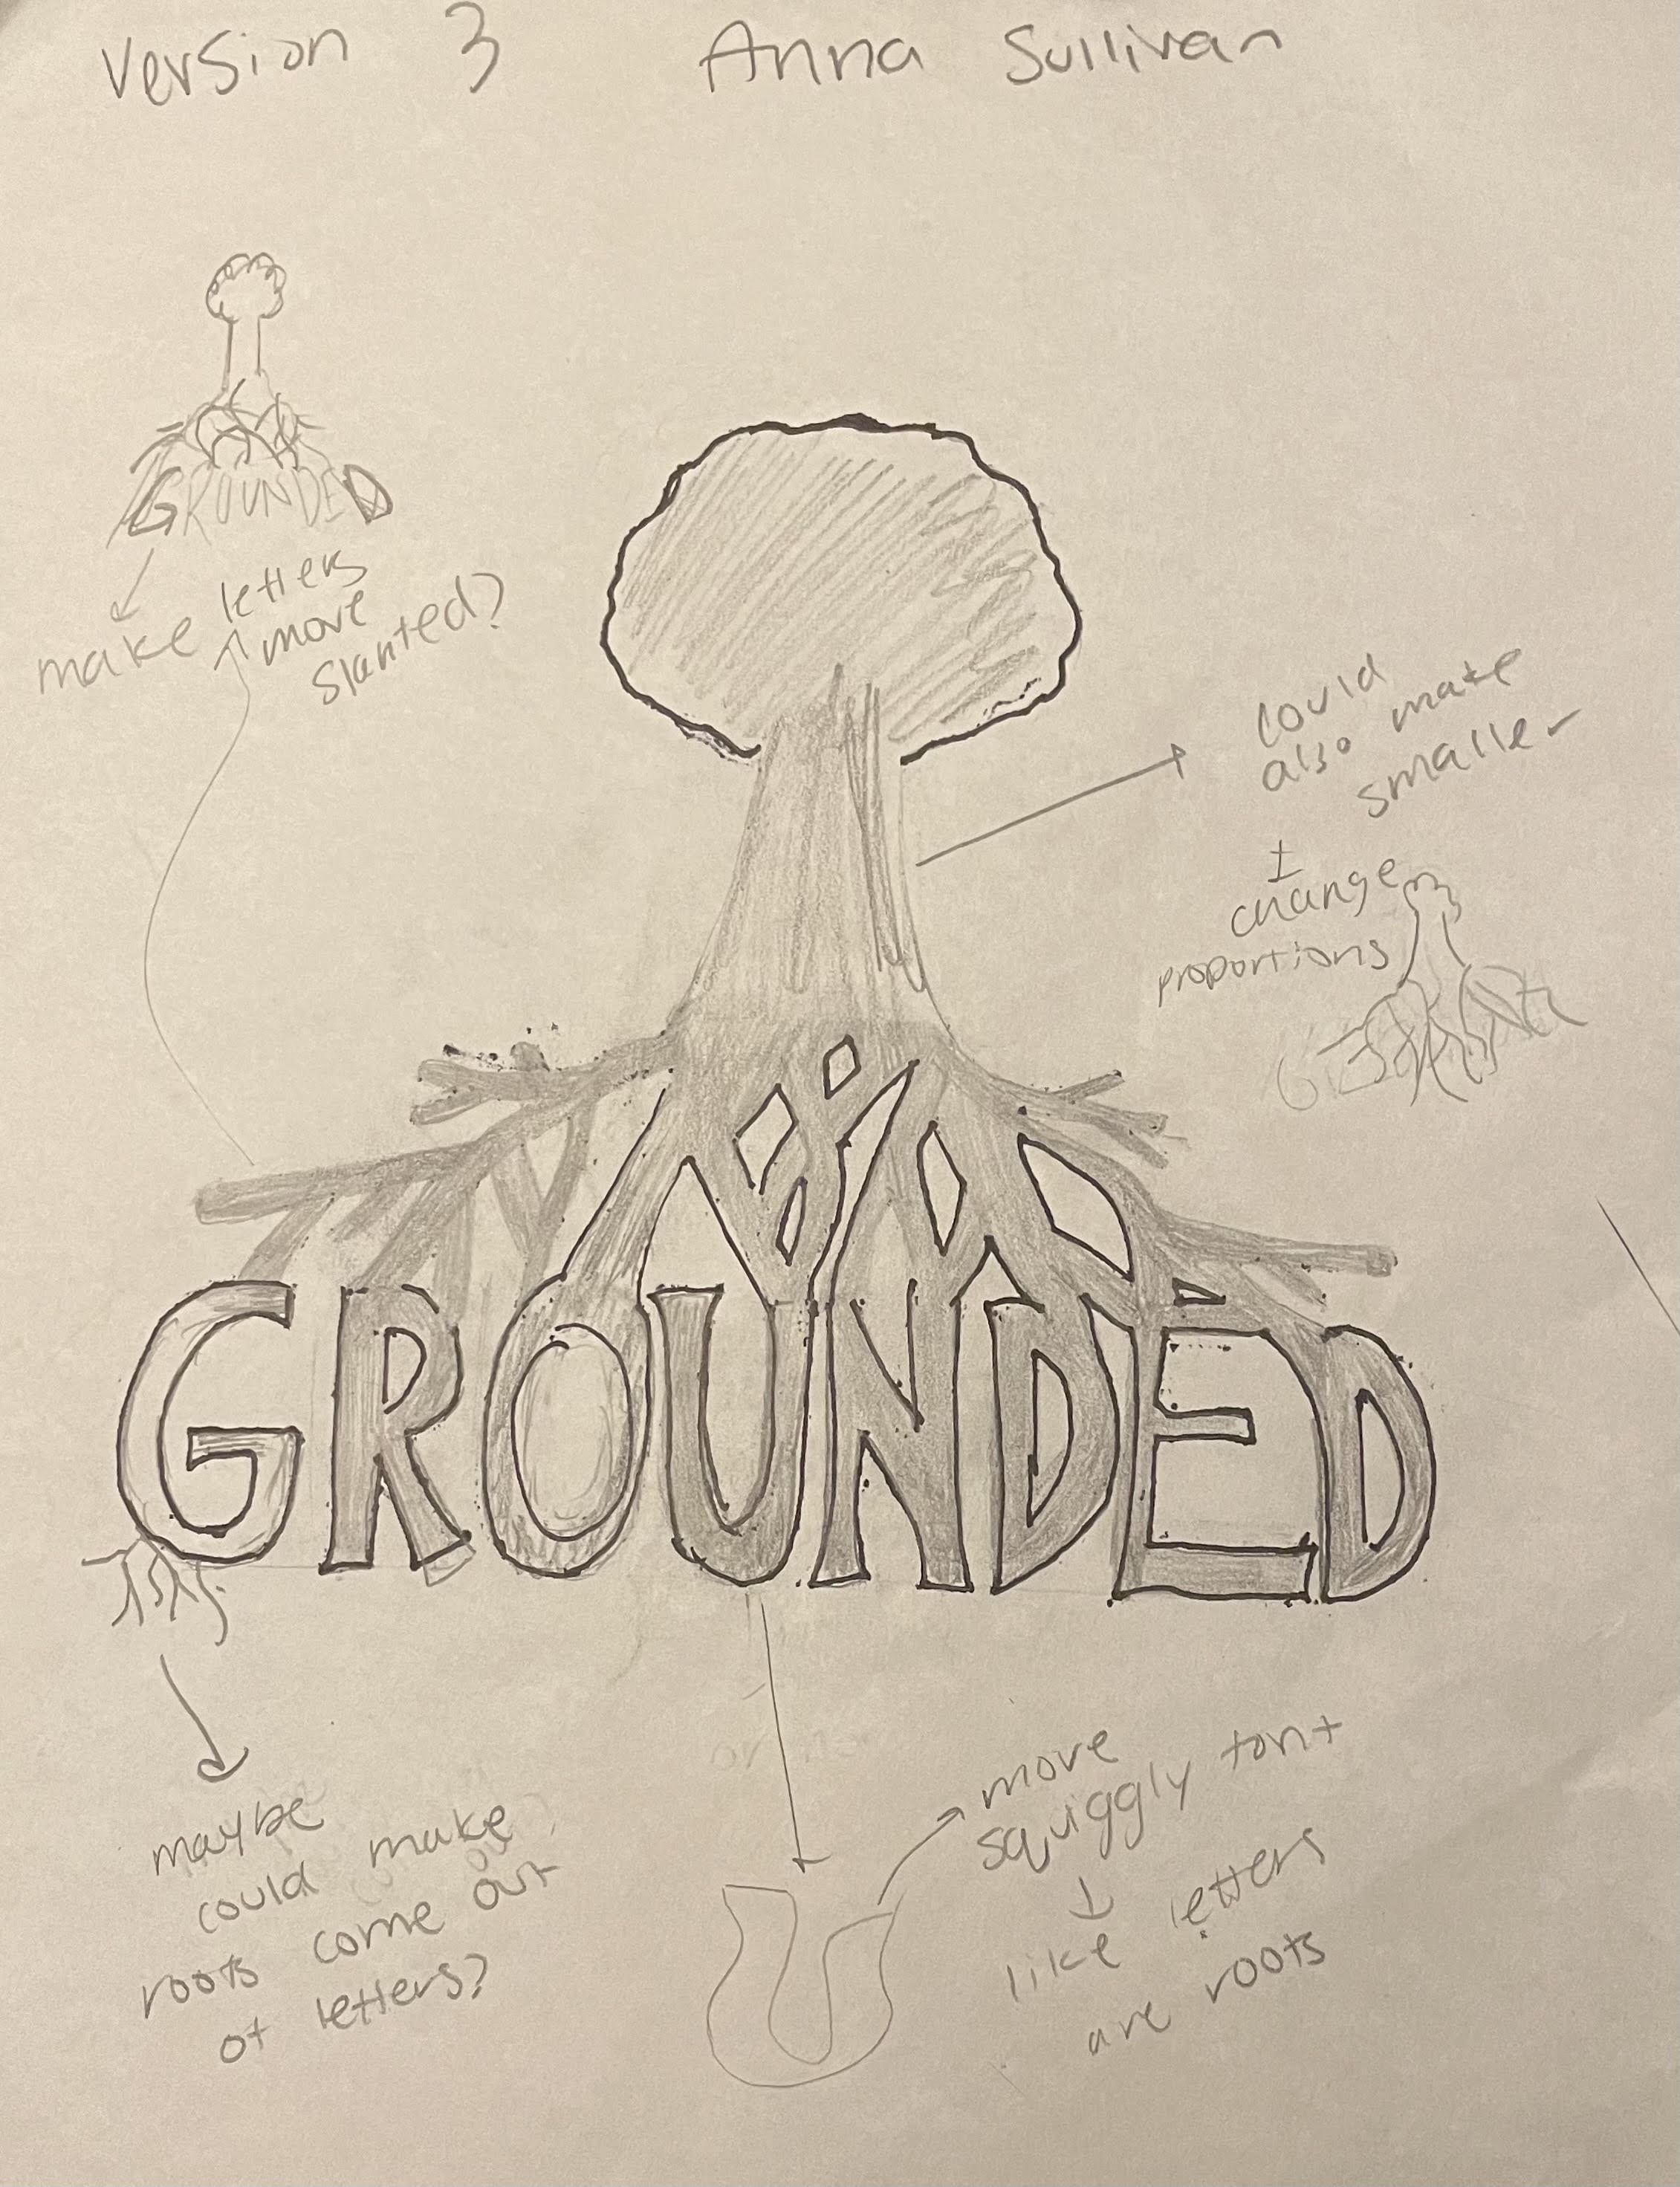 Version 3 Anna Sullivan
GROUNDED
make letters
more
slanted?
could
also make
smaller
+
change
proportions
GROUNDED
maybe
could make
roots come out
of letters?
more
squiggly font
like letters
are roots